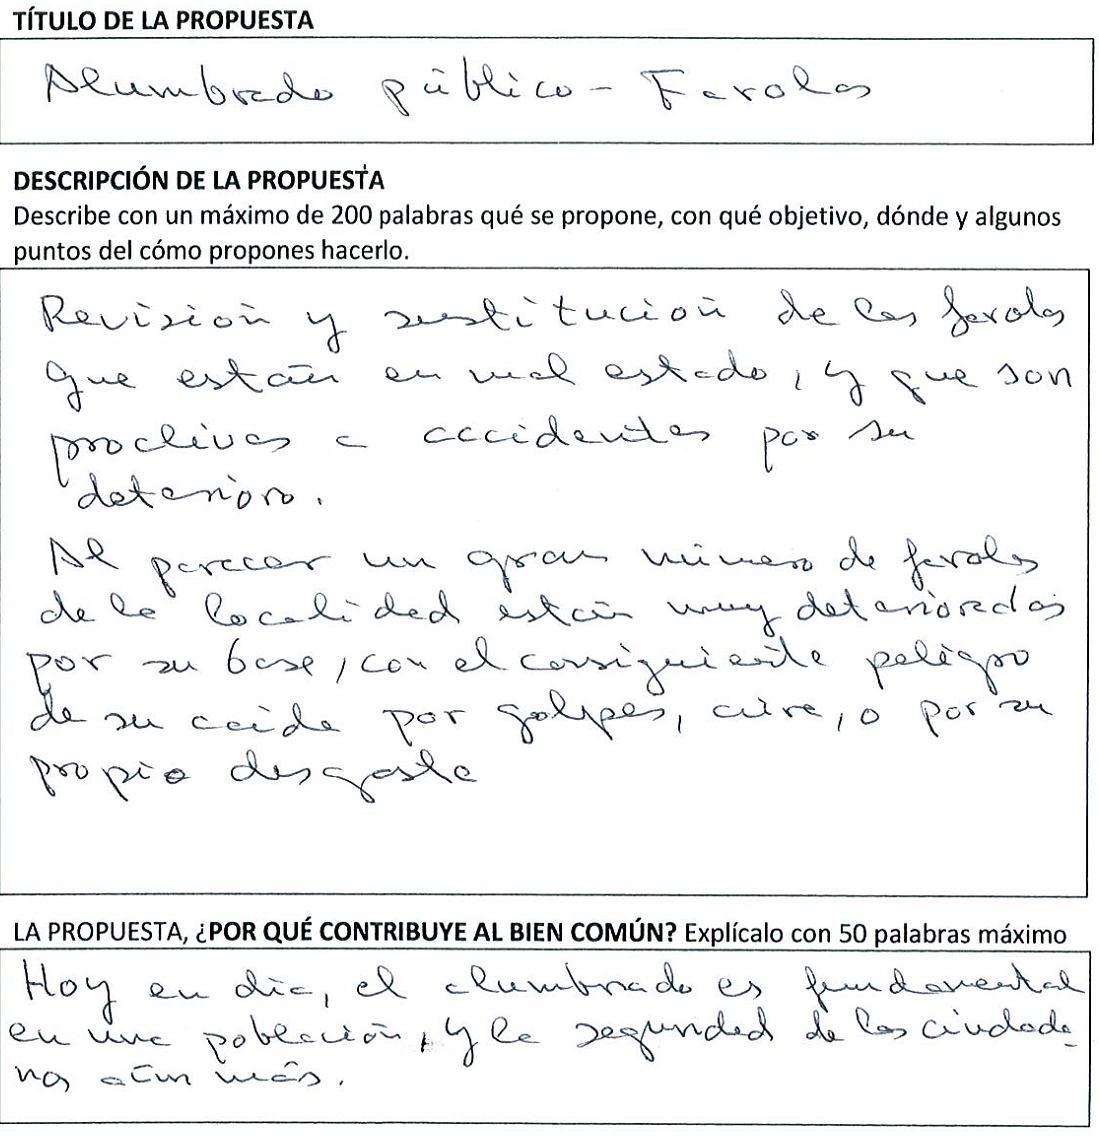 TÍTULO DE LA PROPUESTA
Alumbrado público - Farolas
DESCRIPCIÓN DE LA PROPUESTA
Describe con un máximo de 200 palabras qué se propone, con qué objetivo, dónde y algunos
puntos del cómo propones hacerlo.
Revisión y sustitución de las farolas
que están en mal estado, y que son
proclives a accidentes por su
deterioro.
Al parecer un gran número de farolas
de la localidad están muy deterioradas
por su base, con el consiguiente peligro
de su caída por golpes, aire, o por su
propio desgaste
LA PROPUESTA, ¿POR QUÉ CONTRIBUYE AL BIEN COMÚN? Explícalo con 50 palabras máximo
Hoy en día, el alumbrado es fundamental
en una población, y la seguridad de los ciudada-
nos aún más.